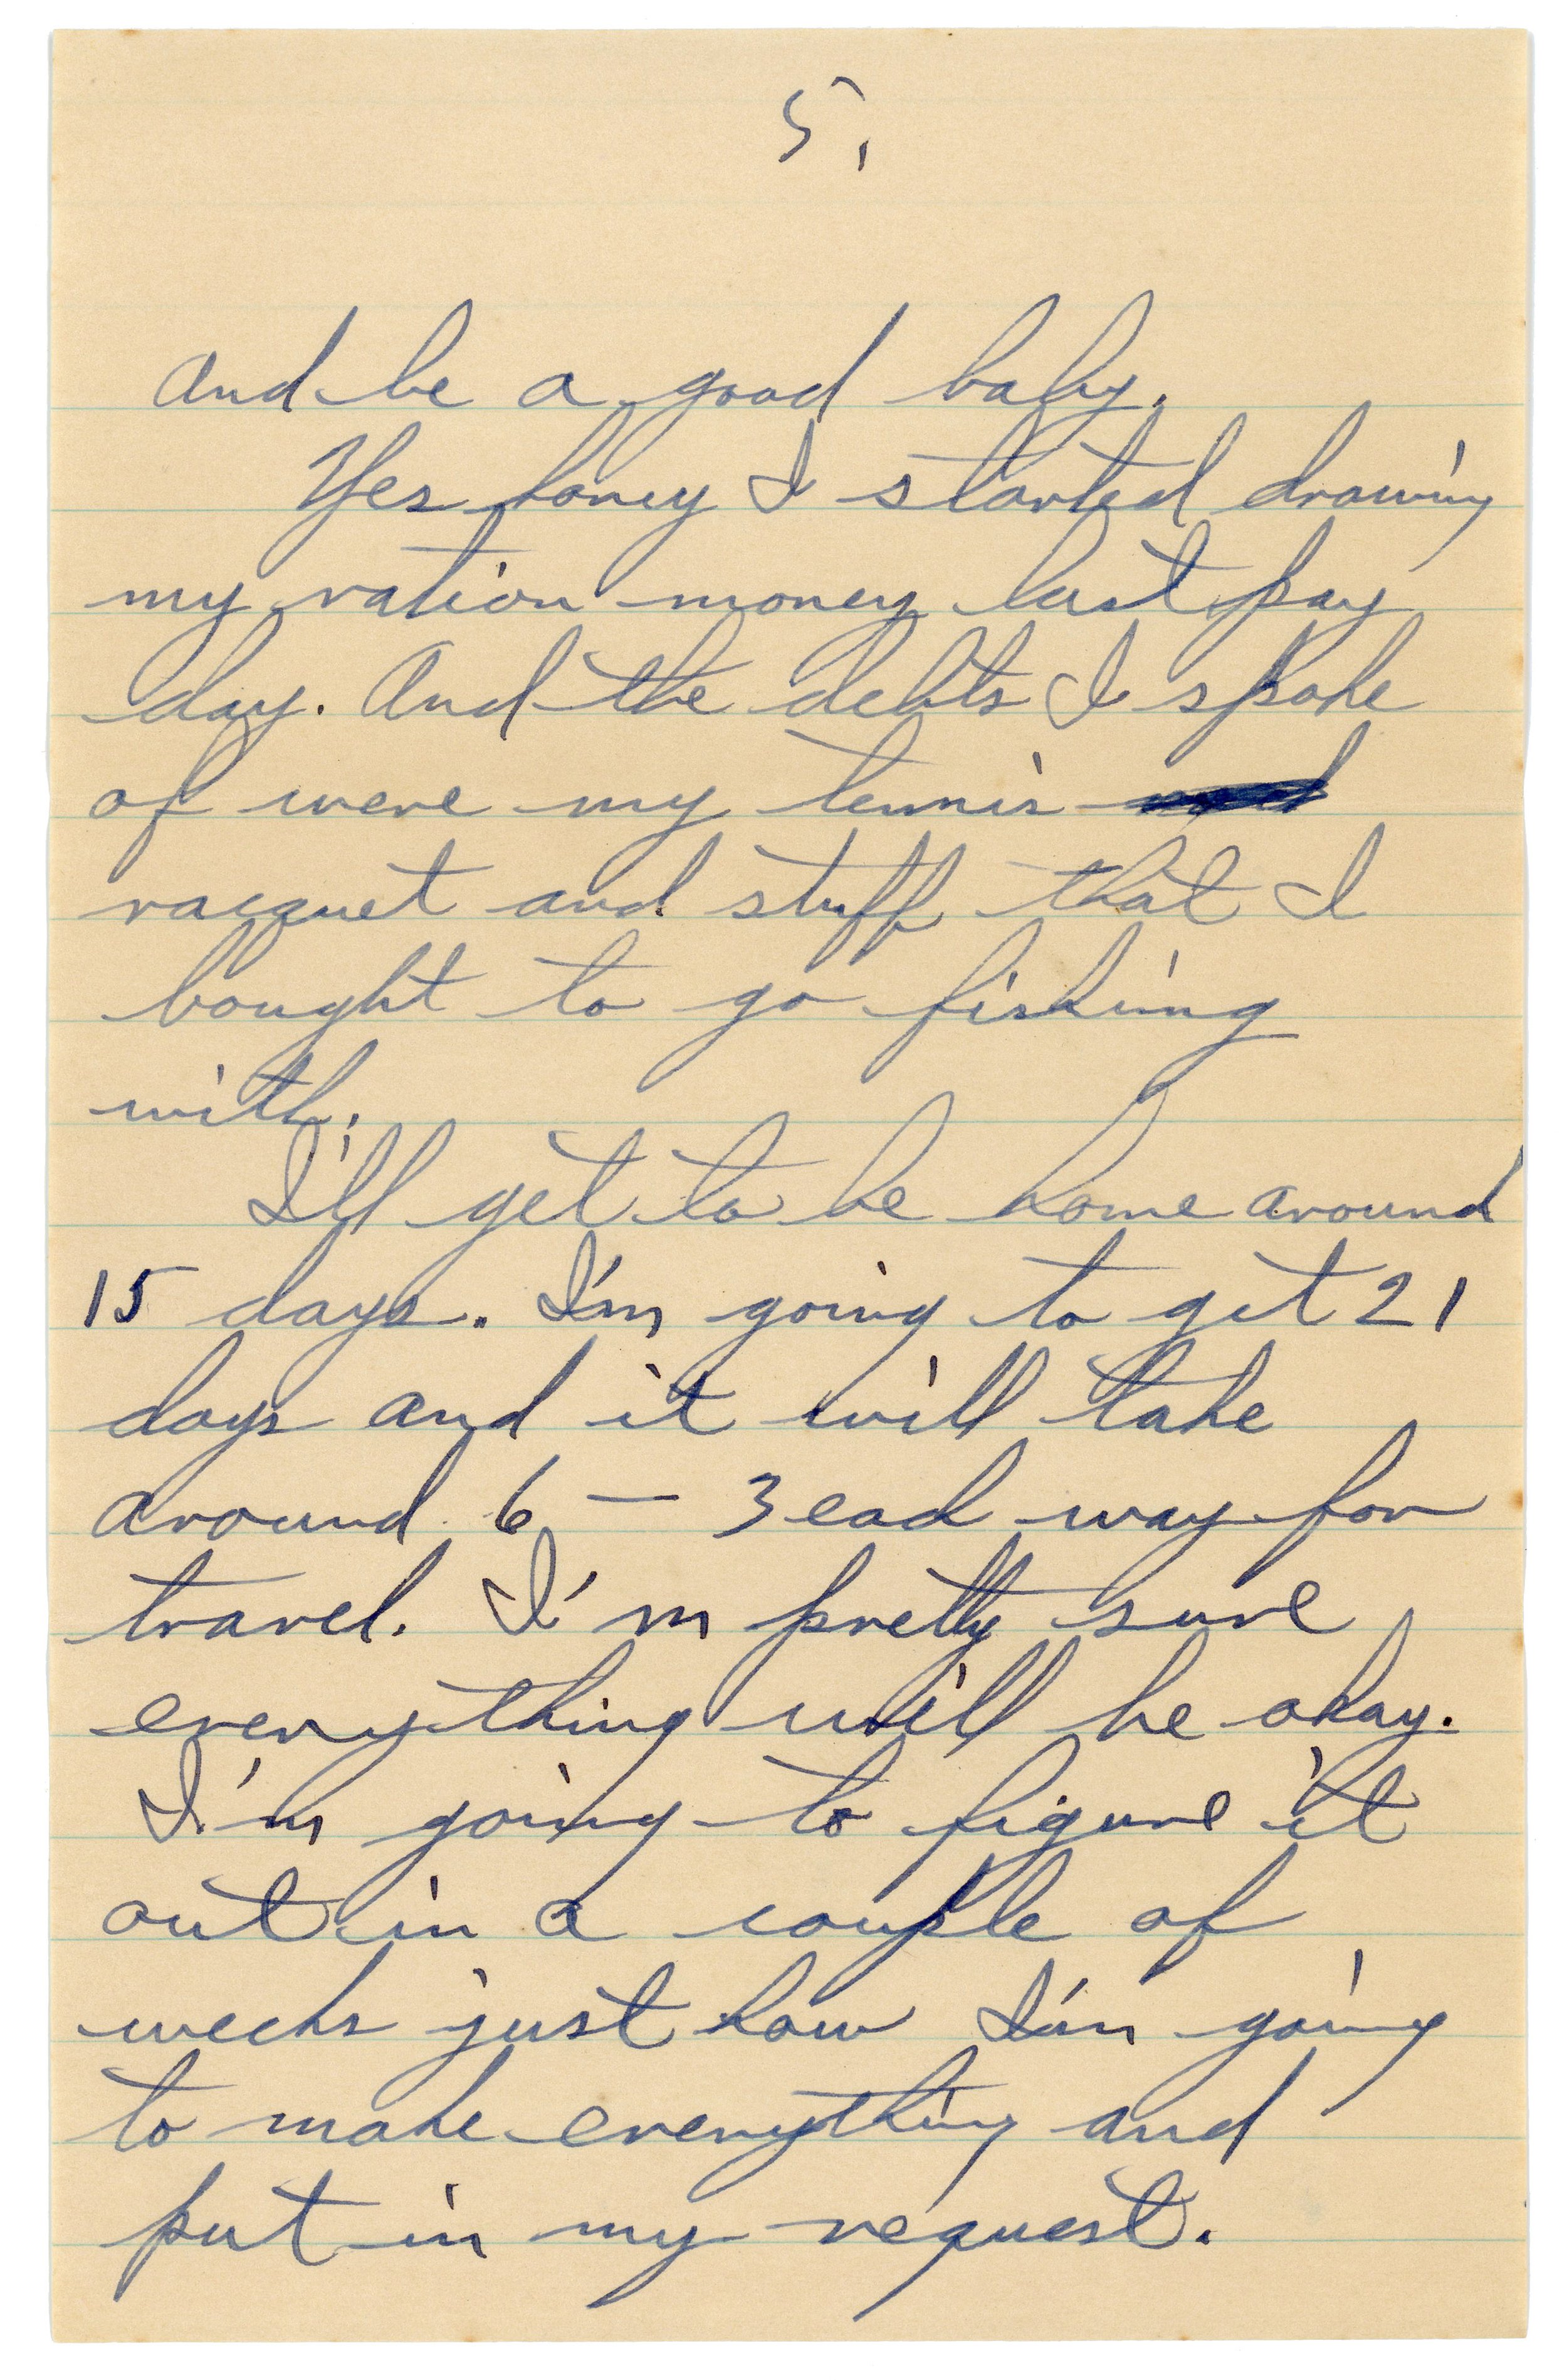 5.
And be a good baby.
Yes honey I started drawing
my ration money last pay
day. And the debts I spoke
of were my tennis
racquet and stuff that I
bought to go fishing
with.
I'll get to be home around
15 days. I'm going to get 21
days and it will take
around 6 — 3 each way for
travel. I'm pretty sure
everything will be okay.
I'm going to figure it
out in a couple of
weeks just how I'm going
to make everything and
put in my request.